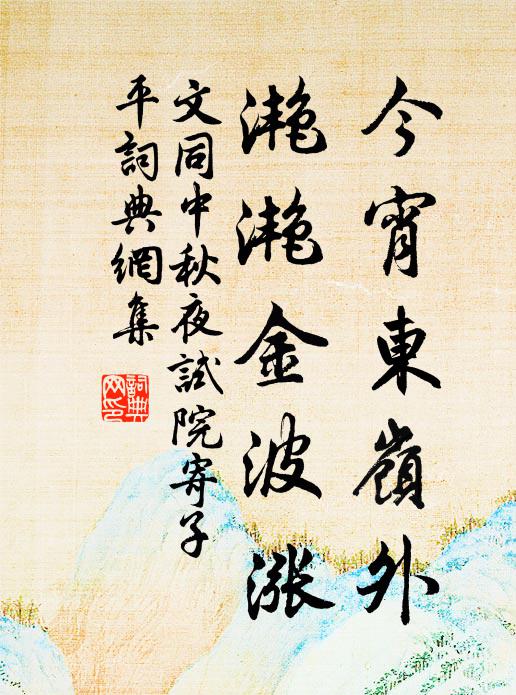 今宵東嶺外
灩灩金波漲
文同中秋夜試院寄子
平詞典網集
詞典
网印